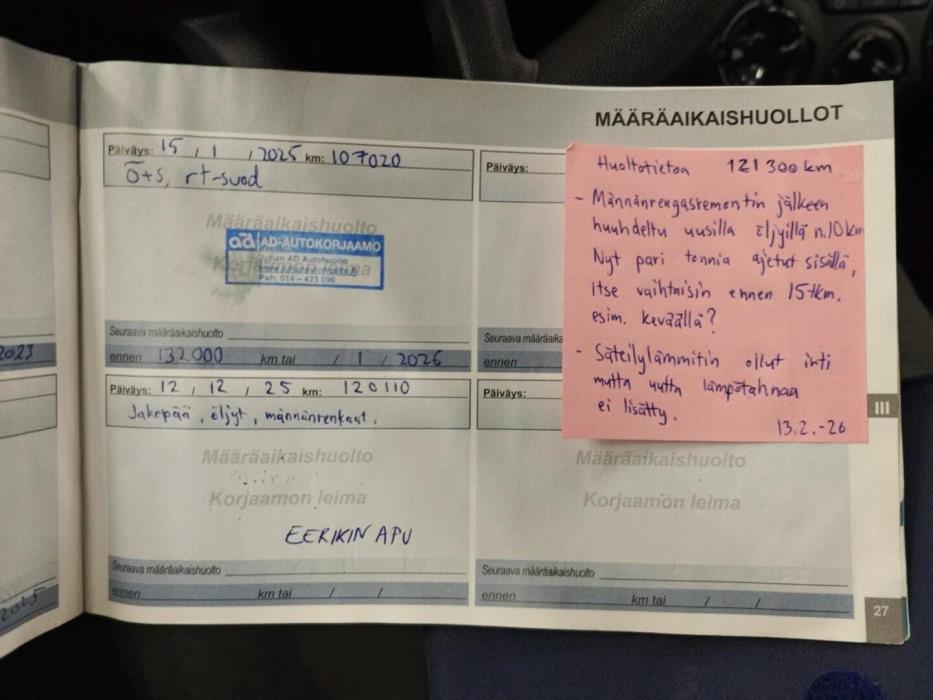 MÄÄRÄAIKAISHUOLLOT
Päiväys: 15 / 1 / 2025 km: 107020
Ö+S, rt-suod
Määräaikaishuolto
Korjaamon leima
ad AD-AUTOKORJAAMO
Puh. 014 - 423 090
Seuraava määräaikaishuolto
ennen 132000 km tai / 1 / 2026
Päiväys: 12 / 12 / 25 km: 120110
Jakopää, öljyt, männänrenkaat.
Määräaikaishuolto
Korjaamon leima
EERIKIN APU
Seuraava määräaikaishuolto
ennen km tai / /
Päiväys:
Seuraava määräaika
ennen
Päiväys:
Määräaikaishuolto
Korjaamon leima
Seuraava määräaikaishuolto
ennen km tai / /
Huoltotietoa 121 300 km
- Männänrengasremontin jälkeen
huuhdeltu uusilla öljyillä n.10km
Nyt pari tonnia ajetut sisällä,
itse vaihtaisin ennen 15tkm,
esim. keväällä?
- Säteilylämmitin ollut irti
mutta uutta lämpötahnaa
ei lisätty.
13.2.-26
III
27
2023
2025